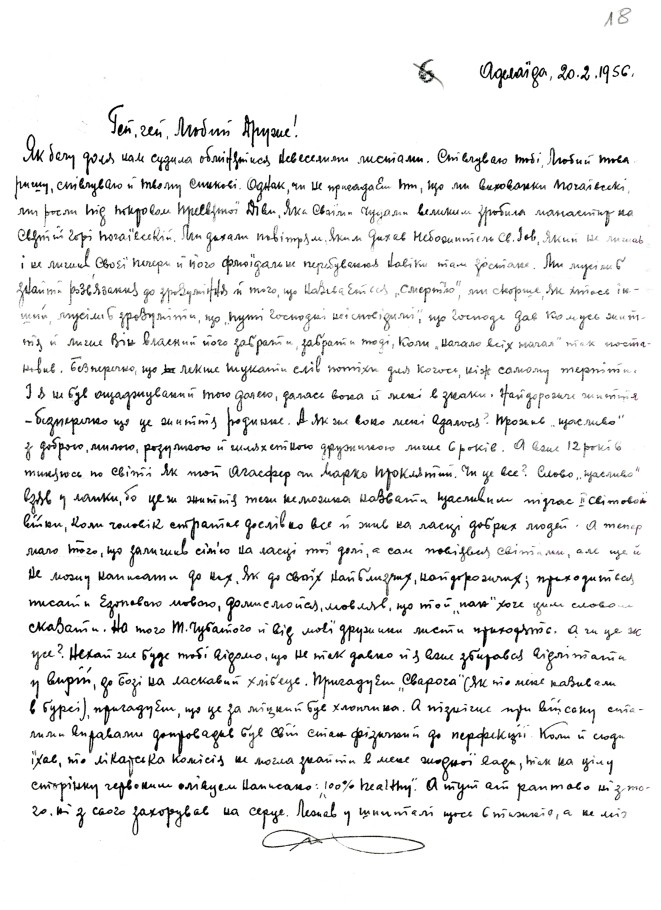 18
6 Аделаїда, 20.2.1956.
Гей, гей, Любий Друже!
Як бачу доля нам судила обмінятися невеселими листами. Співчуваю тобі, Любий това-
ришу, співчуваю й твому синкові. Однак, чи не пригадаєш ти, що ми вихованки почаївські,
ми росли під покровом Пресвятої Діви, Яка Своїми Чудами великим зробила манастир на
Святій Горі почаївській. Ми дихали повітрям, яким дихав Небожитель Св. Іов, Який не лишав
і не лишив Своєї печери й його фізіч перебування навіки там зостане. Ми мусіли б
знайти розв'язання до зрозуміння й того, що називається „Смертю", ми скорше, як хтось ін-
ший, мусіли б зрозуміти, що „путі Господні неісповідимі", що Господь дав комусь жит-
тя й лише Він власний його забрати, забрати тоді, коли „начало всіх начал" так поста-
новив. Безперечно, що легше шукати слів потіхи для когось, ніж самому терпіти.
І я не був ощаджуваний тою долею, далась вона й мені в знаки. Найдорожче життя
– безперечно що це життя родинне. А як же воно мені вдалось? Прожив „щасливо"
з доброю, милою, розумною й шляхетною дружиною лише 6 років. А вже 12 років
тиняюсь по світі як той Агасфер чи Марко Проклятий. Чи це все? Слово „щасливо"
взяв у лапки, бо це ж життя теж неможна назвати щасливим підчас II Світової
війни, коли чоловік стратив дослівно все й жив на ласці добрих людей. А тепер
мало того, що залишив сім'ю на ласці тої долі, а сам повіявся світами, але ще й
не можу написати до них, як до своїх найближчих, найдорожчих; приходиться
писати Езоповою мовою, домислюйся, мовляв, що той „пан" хоче цим словом
сказати. На того М. Чубатого й від моєї дружини листи приходять. А чи це ж
усе? Нехай же буде тобі відомо, що не так давно й я вже збирався відлітати
у вирій, до Бозі на ласкавий хлібець. Пригадуєш „Сварога" (як то мене називали
в бурсі), пригадуєш, що це за міцний був хлопчина. А пізніше при війську ста-
лими вправами допровадив був свій стан фізичний до перфекції. Коли й сюди
їхав, то лікарська комісія не могла знайти в мене жодної вади, так на цілу
сторінку червоним олівцем написано: „100% healthy". А тут ат раптово ні з то-
го, ні з сього захорував на серце. Лежав у шпиталі щось 6 тижнів, а не міг